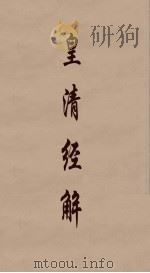 试读
皇清经解
mtoou.info